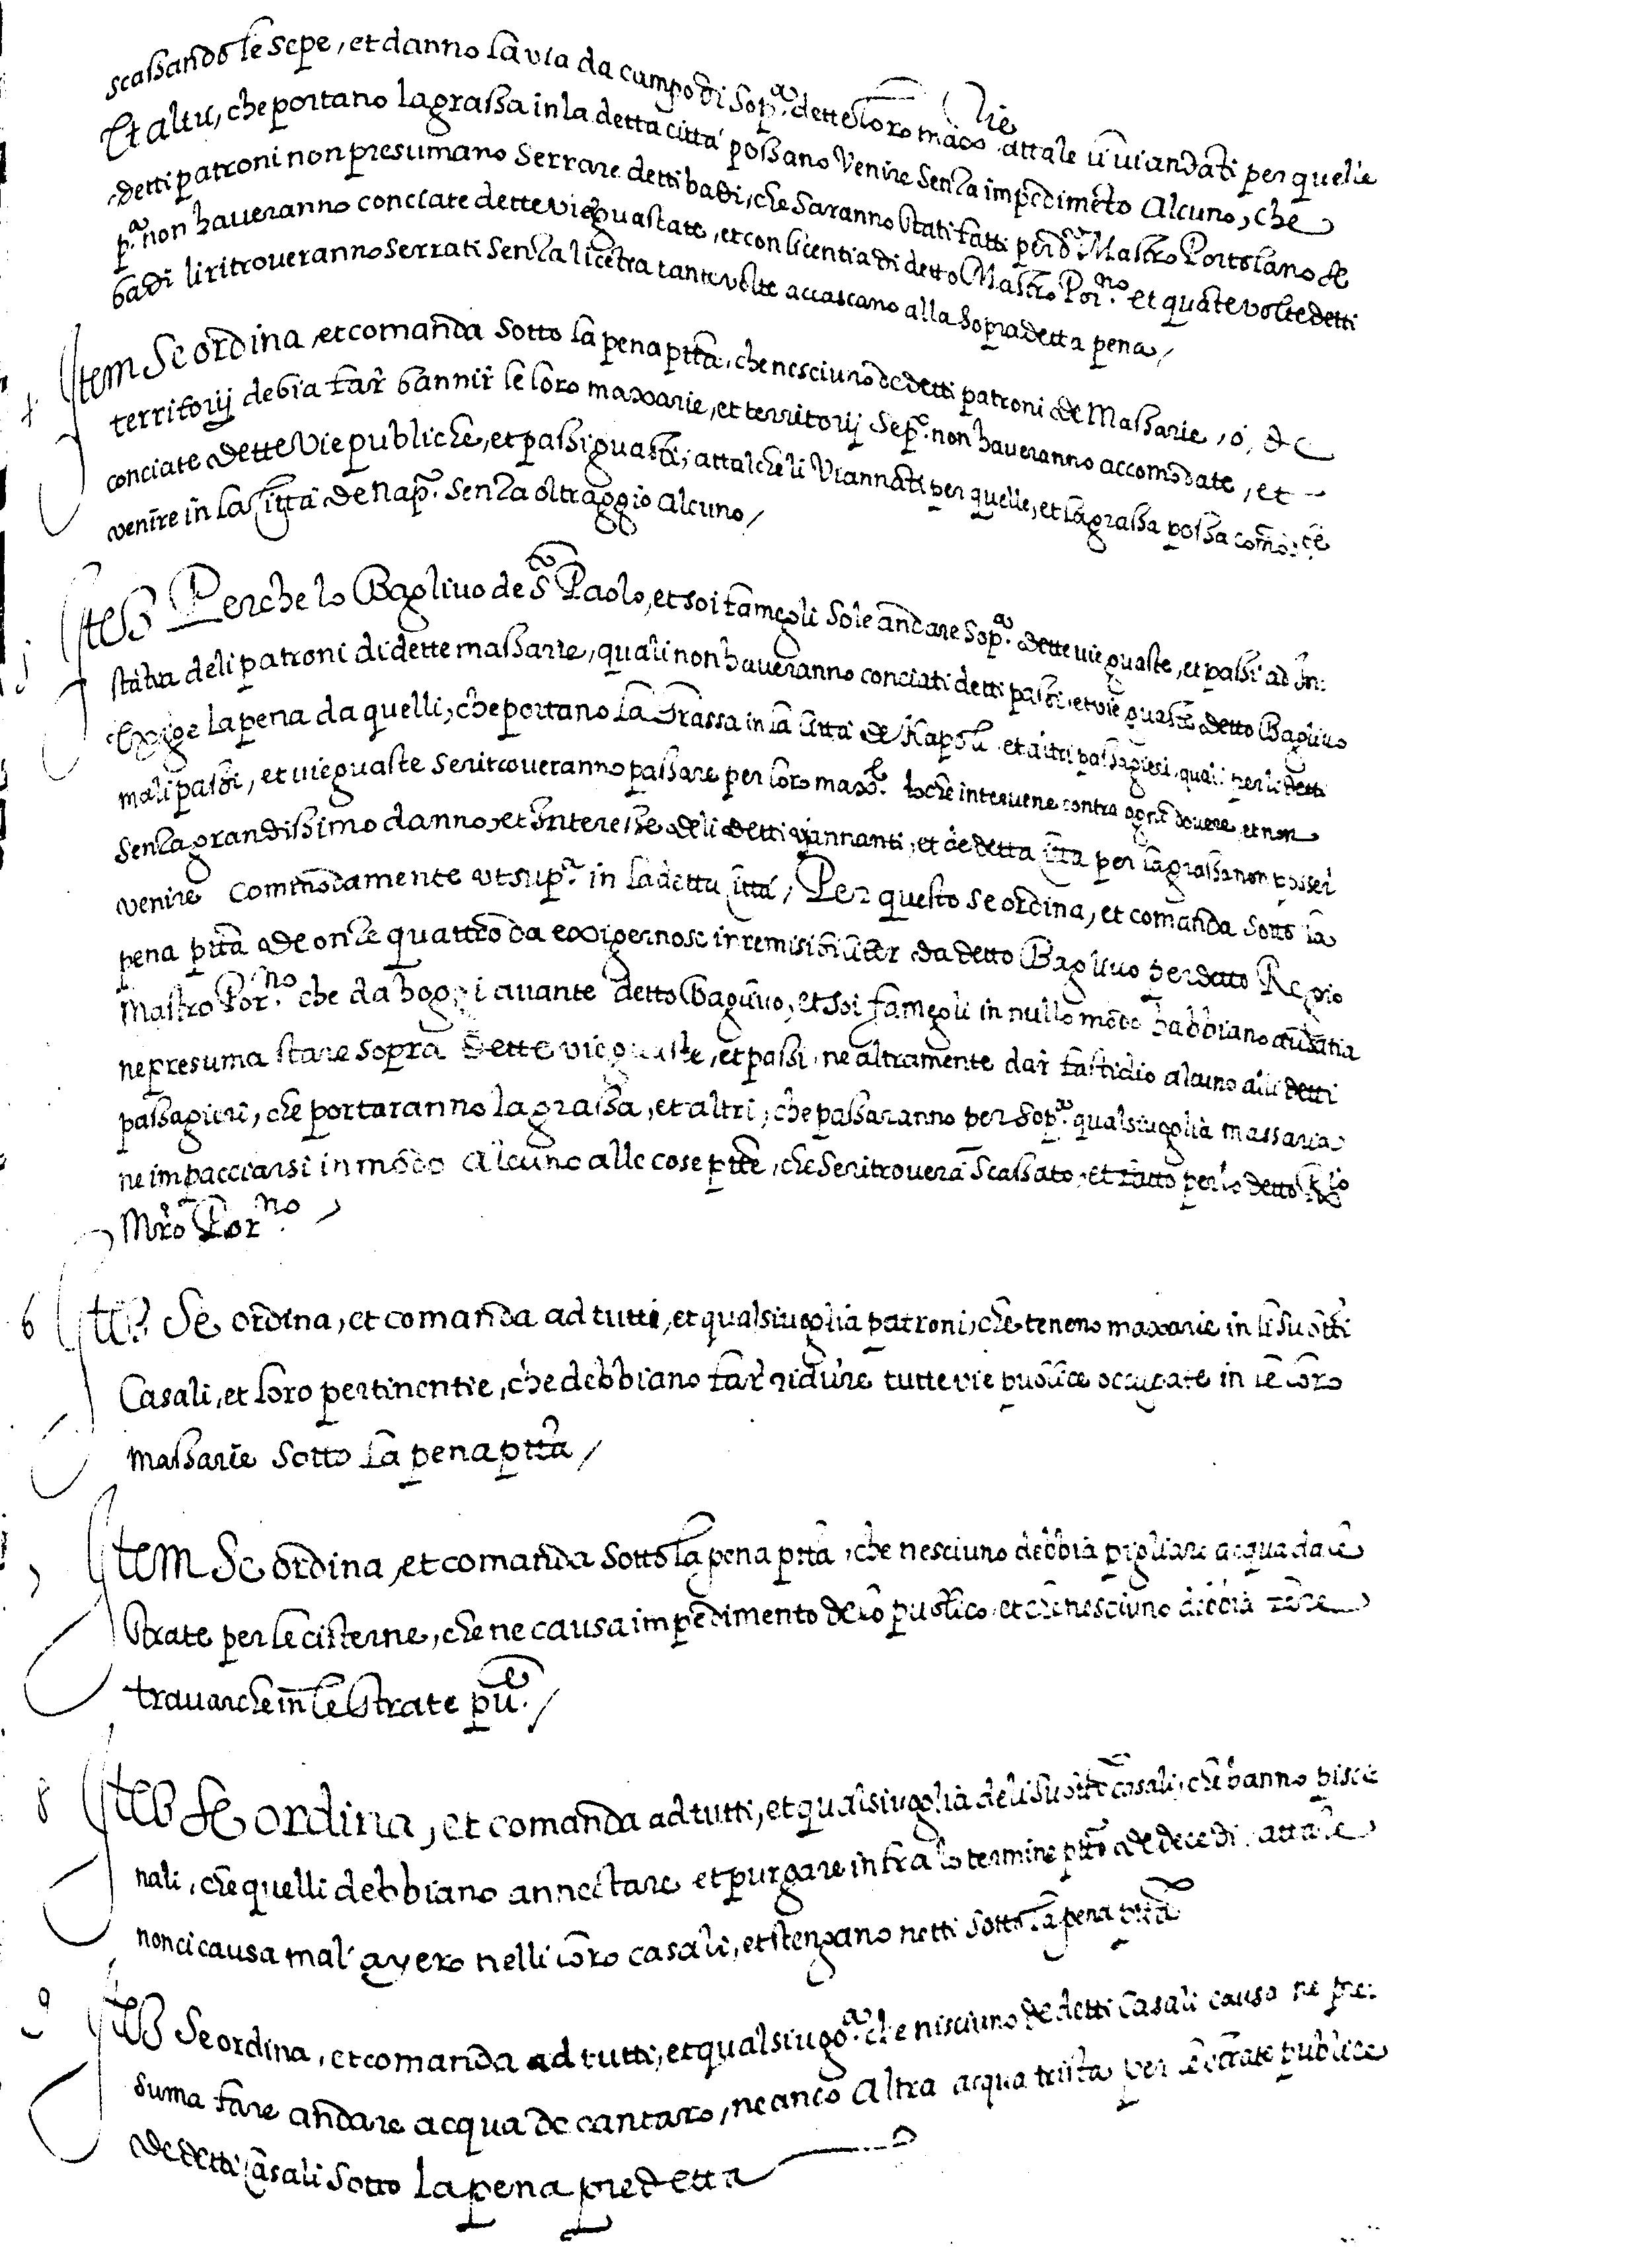 scassando le sepe, et danno la via da campo di sop.ª dette loro mass.rie attale li viandati per quelle
Et altri, che portano la grassa in la detta città possano venire senza impedimẽto alcuno, che
detti patroni non presumano serrare detti badi, che saranno stati fatti per dᵒ Mastro Portolano se
p.ª non haveranno conciate dette vie guastate, et con licentia di detto Mastro Por.no et quãte volte detti
badi li ritroveranno serrati senza licẽtia tante volte accascano alla sopradetta pena /
4 Item Se ordina, et comanda sotto la pena pttã, che nesciuno de detti patroni de Massarie, ó, de
territorij debia far bannir le loro maxarie, et territorij se p.ª non haveranno accomodate, et
conciate dette vie publiche, et passi guasti, attal che li viannati per quelle, et la grassa possa comod.te
venire in la Città de Nap. senza oltraggio alcuno /
5 Item Perche lo Baglivo de S.to Paolo, et soi famegli sole andare sop.ª dette vie guaste, et passi ad in:
stãtia deli patroni di dette massarie, quali non haveranno conciati detti passi, et vie guaste detto Baglivo
Exige la pena da quelli, che portano la Grassa in la Città de Napoli et altri passagieri, quali per li detti
mali passi, et vie guaste se ritroveranno passare per loro max.e loche interviene contra ogni dovere, et non
senza grandissimo danno, et Interesse deli detti viannanti, et de detta città per la grassa non posser
venire commodamente ut sup.ª in la detta Città, Per questo se ordina, et comanda sotto la
pena pttã de onze quattro da exigernose irremisibiliter da detto Baglivo per dato Regio
Mastro Por.no che da hoggi avante detto Baglivo, et soi famegli in nullo modo habbiano audatia
ne presuma stare sopra dette vie guaste, et passi, ne altramente dar fastidio alcuno alli detti
passagieri, che portaranno la grassa, et altri, che passaranno per sop.ª qualsivoglia massaria
ne impacciarsi in modo alcuno alle cose pttẽ, che se ritroverà scassato, et fatto per lo detto R.io
Mro Por.no
6 Itẽ Se ordina, et comanda ad tutti, et qualsivoglia patroni, che teneno maxarie in li suditti
Casali, et loro pertinentie, che debbiano far ridure tutte vie publice occupate in le loro
massarie sotto la pena pttã /
7 Item Se ordina, et comanda sotto la pena pttã, che nesciuno debbia pigliare acqua da le
strate per le cisterne, che ne causa impedimento de lo publico, et che nesciuno debbia tenere
travarche in le strate pu.e /
8 Item se ordina, et comanda ad tutti, et qualsivoglia deli suditti casali, che hanno pisci:
nali, che quelli debbiano annectare et purgare infra lo termine ptto de dece di, attale
non ci causa mal' ayero nelli loro casali, et stengano netti sotto la pena pttã
9 Item Se ordina, et comanda ad tutti, et qualsivog.ª che nisciuno de detti Casali causa ne pre:
suma fare andare acqua de cantaro, ne anco altra acqua trista per le strate publice
de detti Casali sotto la pena predetta